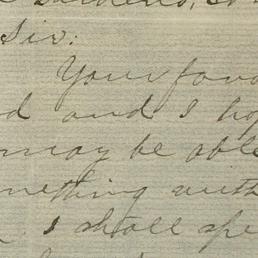 Sir:
Your favo
d and I hop
may be able
mething with
I shall spe